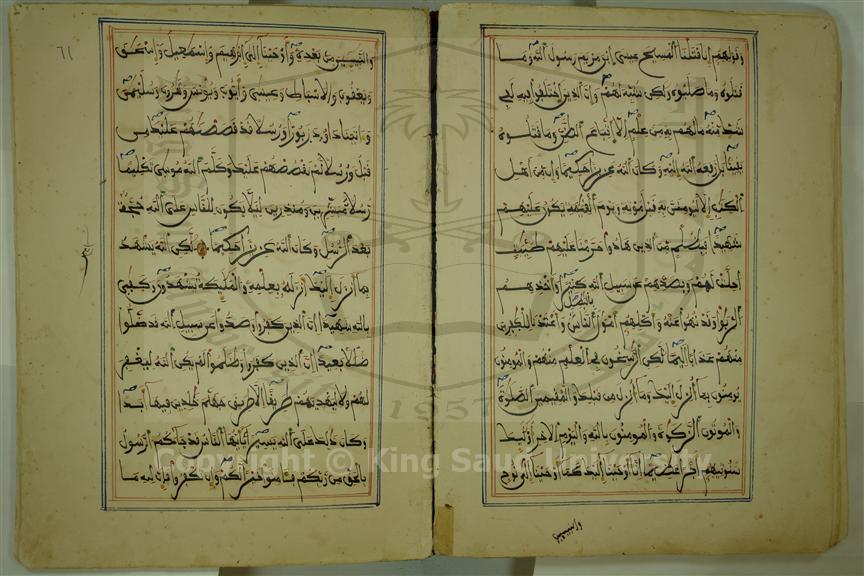 وقولهم إنا قتلنا المسيح عيسى ابن مريم رسول الله وما
قتلوه وما صلبوه ولكن شبه لهم وإن الذين اختلفوا فيه لفي
شك منه ما لهم به من علم إلا اتباع الظن وما قتلوه
يقينا بل رفعه الله إليه وكان الله عزيزا حكيما وإن من أهل
الكتب إلا ليومنن به قبل موته ويوم القيمة يكون عليهم
شهيدا فبظلم من الذين هادوا حرمنا عليهم طيبت
أحلت لهم وبصدهم عن سبيل الله كثيرا وأخذهم
الربوا وقد نهوا عنه وأكلهم أمول الناس بالبطل وأعتدنا للكفرين
منهم عذابا أليما لكن الرسخون في العلم منهم والمومنون
يومنون بما أنزل إليك وما أنزل من قبلك والمقيمين الصلوة
والموتون الزكوة والمومنون بالله واليوم الاخر أولئك
سنوتيهم أجرا عظيما إنا أوحينا إليك كما أوحينا إلى نوح
والنبيين
٦١
والنبيين من بعده وأوحينا إلى إبرهيم وإسمعيل وإسحق
ويعقوب والاسباط وعيسى وأيوب ويونس وهرون وسليمن
وءاتينا داوود زبورا ورسلا قد قصصنهم عليك من
قبل ورسلا لم نقصصهم عليك وكلم الله موسى تكليما
رسلا مبشرين ومنذرين ليلا يكون للناس على الله حجة
بعد الرسل وكان الله عزيزا حكيما لكن الله يشهد
بما أنزل إليك أنزله بعلمه والمليكة يشهدون وكفى
بالله شهيدا إن الذين كفروا وصدوا عن سبيل الله قد ضلوا
ضللا بعيدا إن الذين كفروا وظلموا لم يكن الله ليغفر
لهم ولا ليهديهم طريقا إلا طريق جهنم خلدين فيها أبدا
وكان ذلك على الله يسيرا يأيها الناس قد جاءكم الرسول
بالحق من ربكم فءامنوا خيرا لكم وإن تكفروا فإن لله ما
1957
Copyright © King Saud University